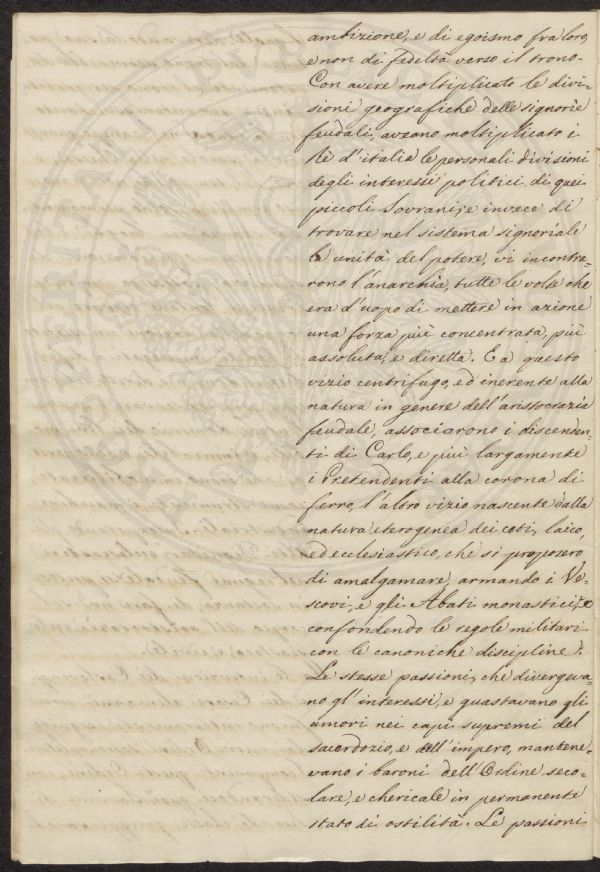 ambizione, e di egoismo fra loro,
e non di fedeltà verso il trono.
Con avere moltiplicato le divi=
sioni geografiche delle signorie
feudali, aveano moltiplicato i
Rè d'italia le personali divisioni
degli interessi politici di quei
piccoli Sovrani; e invece di
trovare nel sistema signoriale
la unità del potere, vi incontra=
rono l'anarchia, tutte le volte che
era d'uopo di mettere in azione
una forza più concentrata, più
assoluta, e diretta. E a questo
vizio centrifugo, ed inerente alla
natura in genere dell'aristocrazia
feudale, associarono i discenden=
ti di Carlo, e più largamente
i Pretendenti alla corona di
ferro, l'altro vizio nascente dalla
natura eterogenea dei ceti, laico,
ed ecclesiastico, che si proposero
di amalgamare, armando i Ve=
scovi, e gli Abati monastici, e
confondendo le regole militari
con le canoniche discipline).
Le stesse passioni, che divergeva=
no gl'interessi, e guastavano gli
umori nei capi supremi del
sacerdozio, e dell'impero, mantene=
vano i baroni dell'Ordine seco=
lare, e chericale in permanente
stato di ostilità. Le passioni